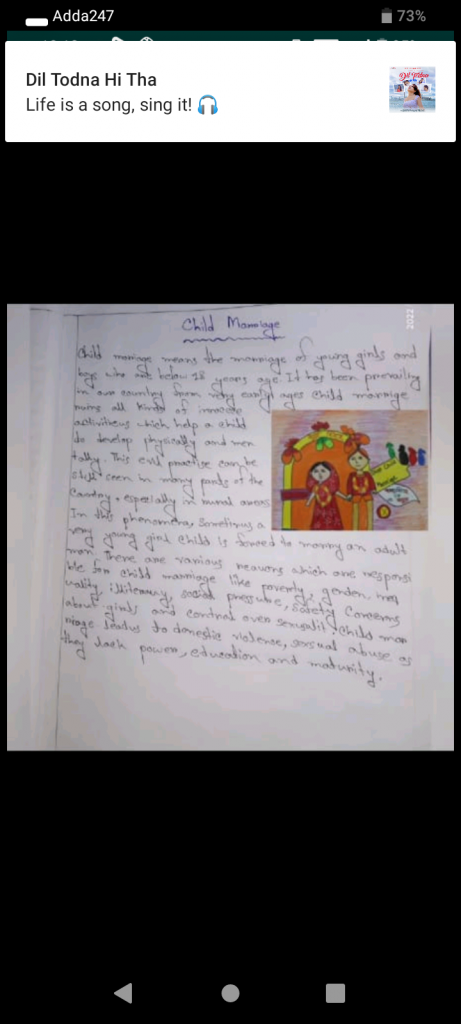 Adda247
73%
Dil Todna Hi Tha
Life is a song, sing it! 🎧
2022
Child Marriage
Child marriage means the marriage of young girls and
boys who are below 18 years age. It has been prevailing
in our country from very early ages child marrige
ruins all kinds of
which help a child
to develop physically and men
tally. This evil practise can be
still seen in many parts of the
Country, especially in rural areas.
In this phenomena, Sometimes a
very young girl child is forced to marry an adult
man. There are various which are responsi
ble for child marriage like poverty, gender
social pressure, safety Concerns
about girls and control over Child mar
riage to domestic violence, sexual abuse as
they lack power, education and maturity.